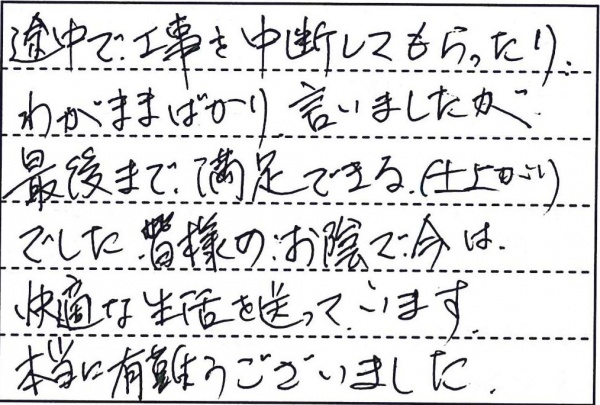 途中で工事を中断してもらったり、
わがままばかり言いましたが
最後まで満足できる仕上がり
でした 皆様のお陰で今は
快適な生活を送っています
本当に有難うございました.